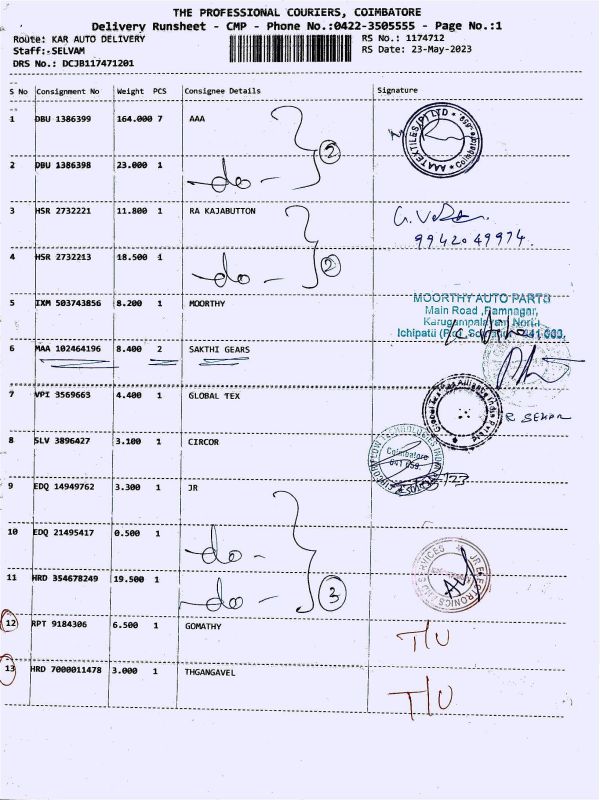 THE PROFESSIONAL COURIERS, COIMBATORE
Delivery Runsheet - CMP - Phone No.:0422-3505555 - Page No.:1
Route: KAR AUTO DELIVERY RS No.: 1174712
Staff:-SELVAM RS Date: 23-May-2023
DRS No.: DCJB117471201
S No Consignment No Weight PCS Consignee Details Signature
1 DBU 1386399 164.000 7 AAA
AAA TEXTILES (P) LTD Coimbatore
2 DBU 1386398 23.000 1 -do- 2
3 HSR 2732221 11.800 1 RA KAJABUTTON
9942049974.
4 HSR 2732213 18.500 1 -do- 2
5 IXM 503743856 8.200 1 MOORTHY
MOORTHY AUTO PARTS
Main Road, Ramnagar,
Karugampalayam North
6 MAA 102464196 8.400 2 SAKTHI GEARS
7 VPI 3569663 4.400 1 GLOBAL TEX
R SEKAR
8 SLV 3896427 3.100 1 CIRCOR
Coimbatore
641 659
9 EDQ 14949762 3.300 1 JR
10 EDQ 21495417 0.500 1 -do-
11 HRD 354678249 19.500 1 -do- 3
JR ELECTRONICS AND SERVICES
12 RPT 9184306 6.500 1 GOMATHY T/U
13 HRD 7000011478 3.000 1 THGANGAVEL T/U